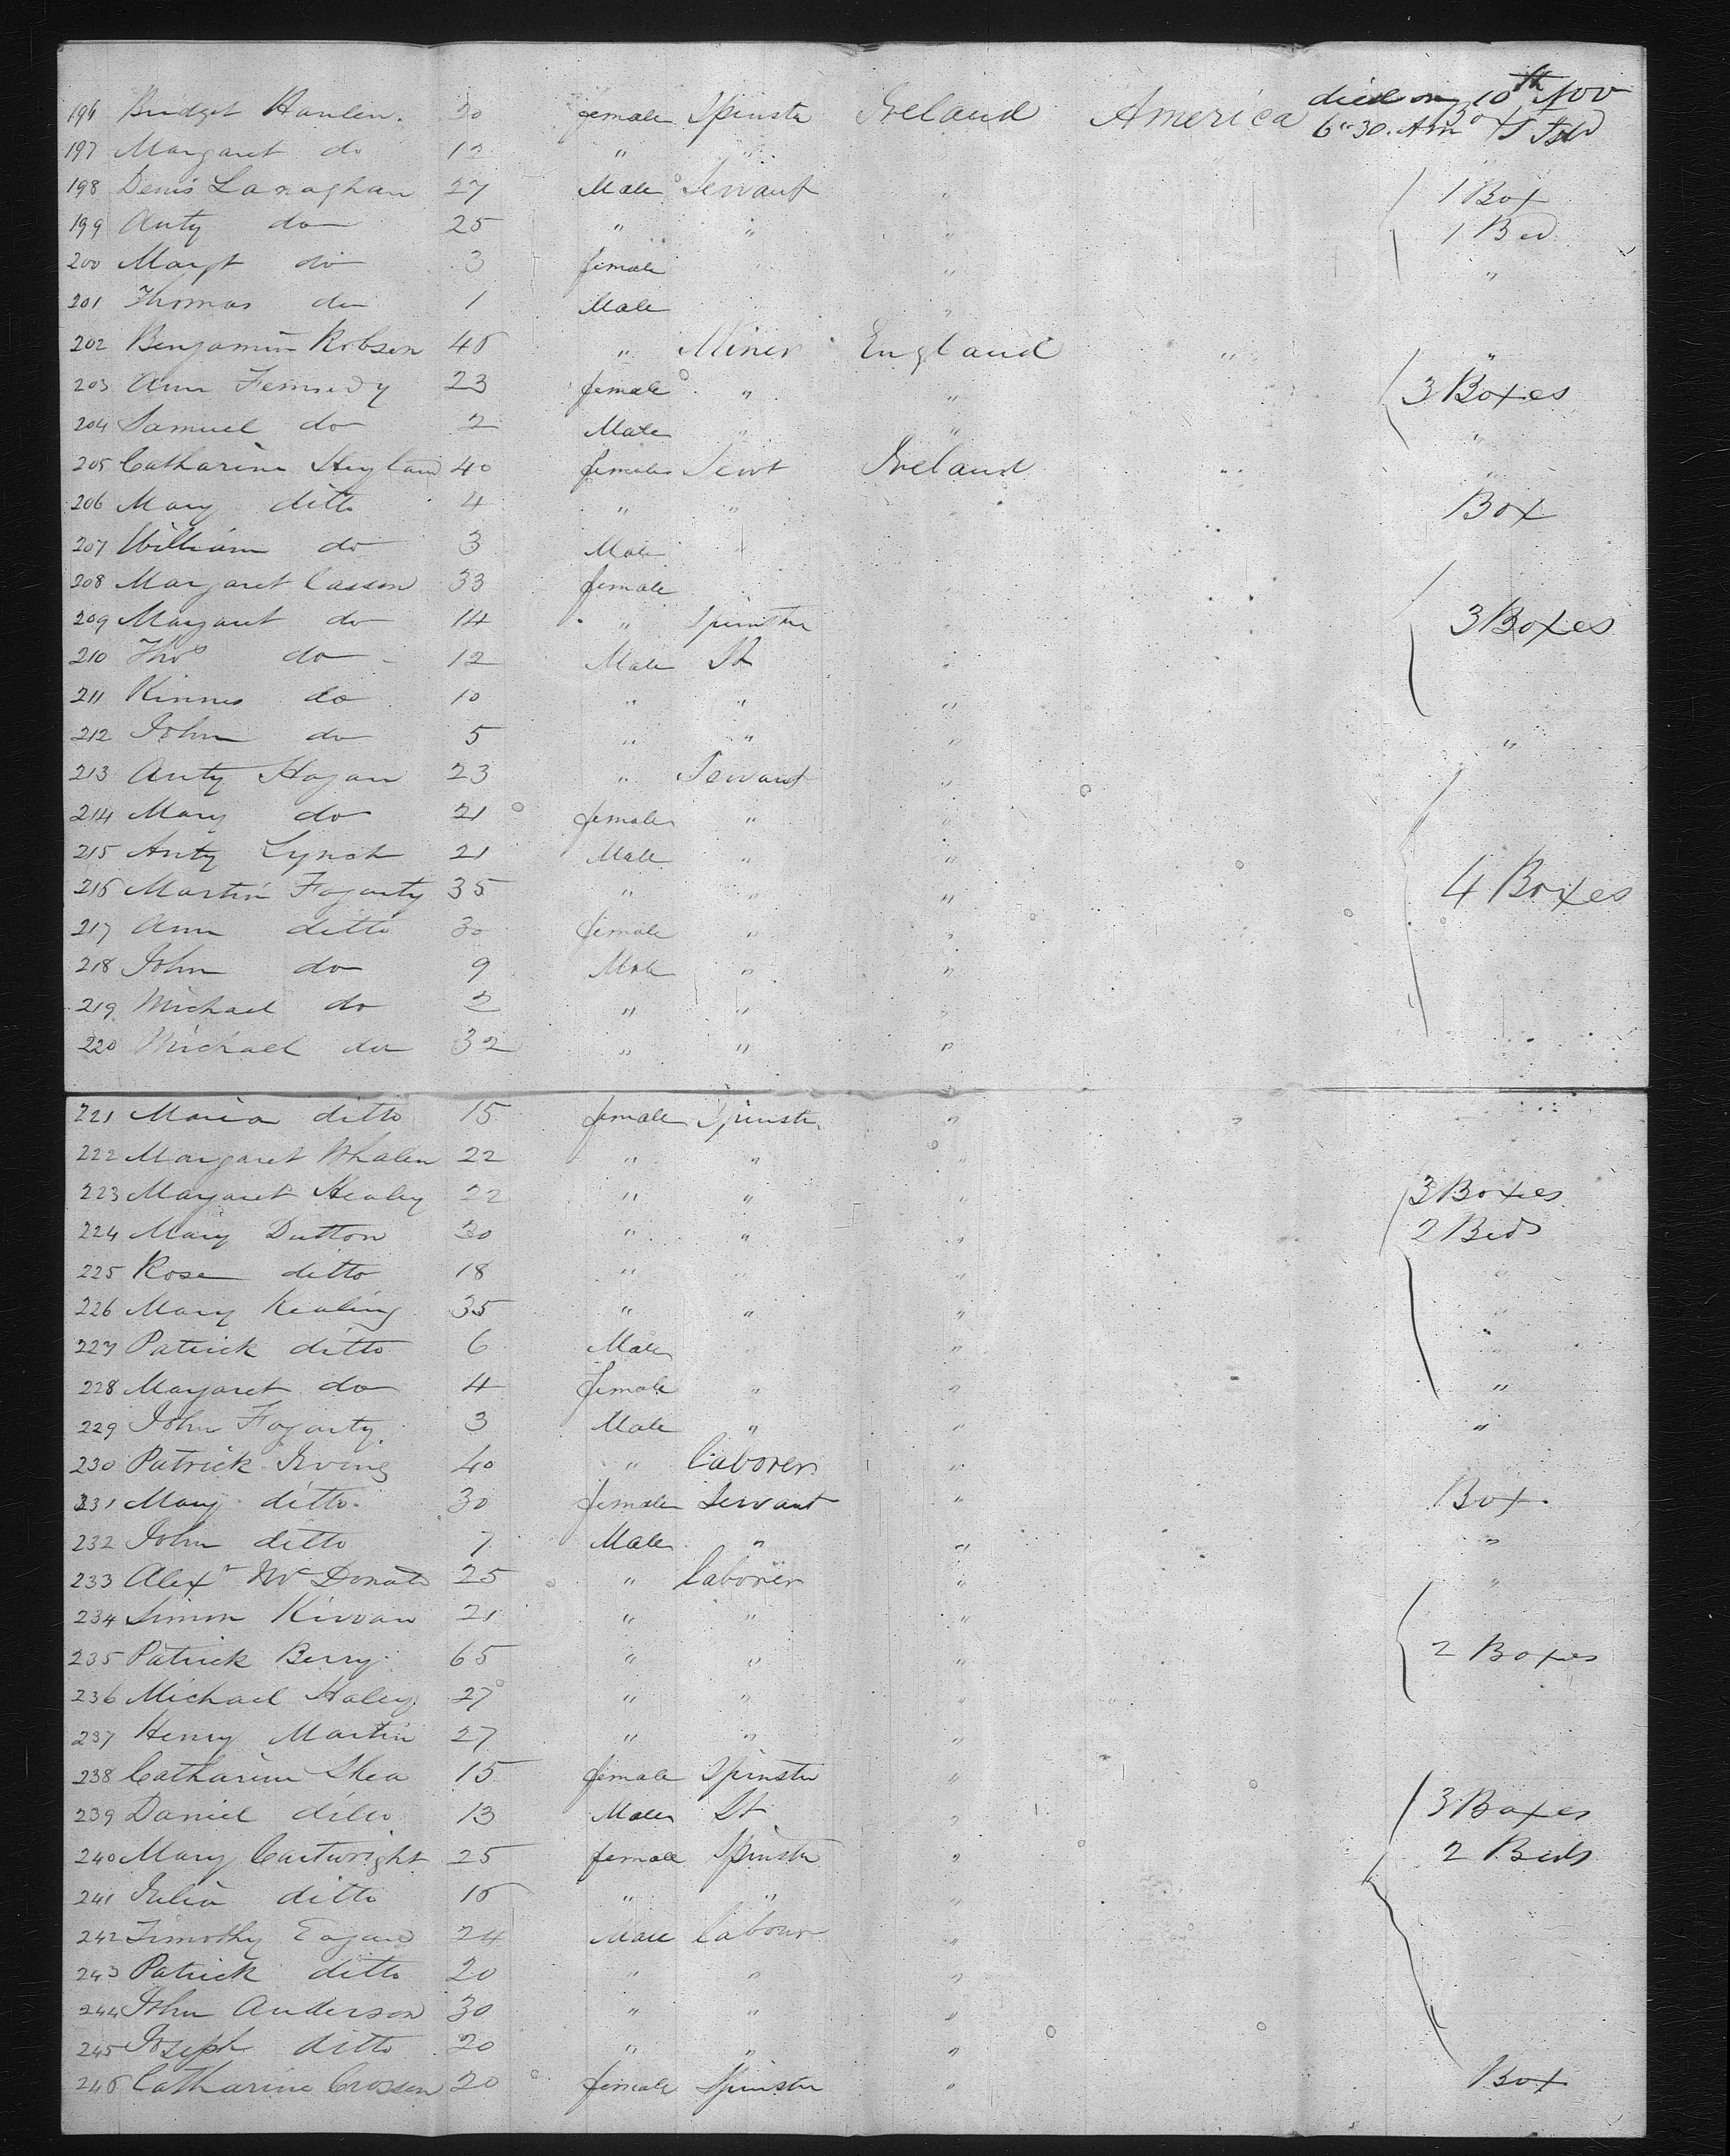 196 Bridget Hanlen. 20 female Spinstr Ireland America died on 10th Nov
6"30. Am
197 Margaret do 12 " "
198 Denis Lanaghan 27 Male Servant " 1 Box
199 Anty do 25 " " " 1 Bed
200 Margt do 3 female " "
201 Thomas do 1 Male "
202 Benjamin Robson 46 " Miner England " "
203 Ann Femsedy 23 female " " 3 Boxes
204 Samuel do 2 Male " " "
205 Catharine Heyland 40 female Servt Ireland " "
206 Mary ditto 4 " " " Box
207 William do 3 Male "
208 Margaret Casson 33 female "
209 Margaret do 14 " Spinster " 3 Boxes
210 Thos do 12 Male St "
211 Kinnes do 10 " " "
212 John do 5 " " " "
213 Anty Hogan 23 " Servant "
214 Mary do 21 female " "
215 Anty Lynch 21 Male " "
216 Martin Fogarty 35 " " " 4 Boxes
217 Ann ditto 30 female " "
218 John do 9 Male " "
219 Michael do 2 " " "
220 Michael do 32 " " "
221 Maria ditto 15 female Spinstr. " "
222 Margaret Whalen 22 " " "
223 Margaret Healey 22 " " " 3 Boxes
224 Mary Dutton 30 " " " 2 Beds
225 Rose ditto 18 " " " "
226 Mary Kealing 35 " " " "
227 Patrick ditto 6 Male " "
228 Margaret do 4 female " " "
229 John Fogarty 3 Male " " "
230 Patrick Irving 40 " laborer "
231 Mary ditto 30 female Servant " Box
232 John ditto 7 Male " " "
233 Alexr McDonald 25 " laborer " "
234 Simon Kirwan 21 " " "
235 Patrick Berry 65 " " " 2 Boxes
236 Michael Haley 27 " " "
237 Henry Martin 27 " " "
238 Catharine Shea 15 female Spinster "
239 Daniel ditto 13 Male St " 3 Boxes
240 Mary Cartwright 25 female Spinster " 2 Beds
241 Julia ditto 16 " " "
242 Timothy Eagan 24 Male labour "
243 Patrick ditto 20 " " "
244 John Anderson 30 " " "
245 Joseph ditto 20 " " "
246 Catharine Crossen 20 female Spinster " Box